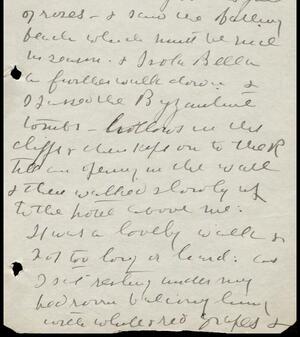 of roses – & saw the bathing
beach which must be nice
in season. & Isola Bella
a further walk down. &
I passed the Byzantine
tombs – hollows in the
cliffs & then kept on to the R
till an opening in the wall
& then walked slowly up
to the hotel above me.
It was a lovely walk &
not too long or hard: and
I sit resting under my
bedroom balcony hung
with white & red grapes &